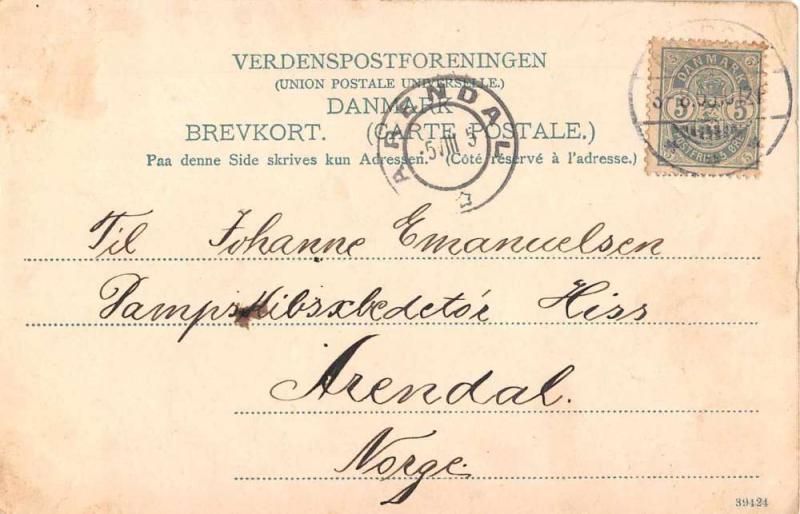 VERDENSPOSTFORENINGEN
(UNION POSTALE UNIVERSELLE.)
DANMARK
BREVKORT. (CARTE POSTALE.)
Paa denne Side skrives kun Adressen. (Côté réservé à l'adresse.)
ARENDAL
5 VIII 3
5 DANMARK 5
5 5
POSTFRIMS
Til Johanne Emanuelsen
Dampskibsxbedetör Hiss
Arendal.
Norge.
39424